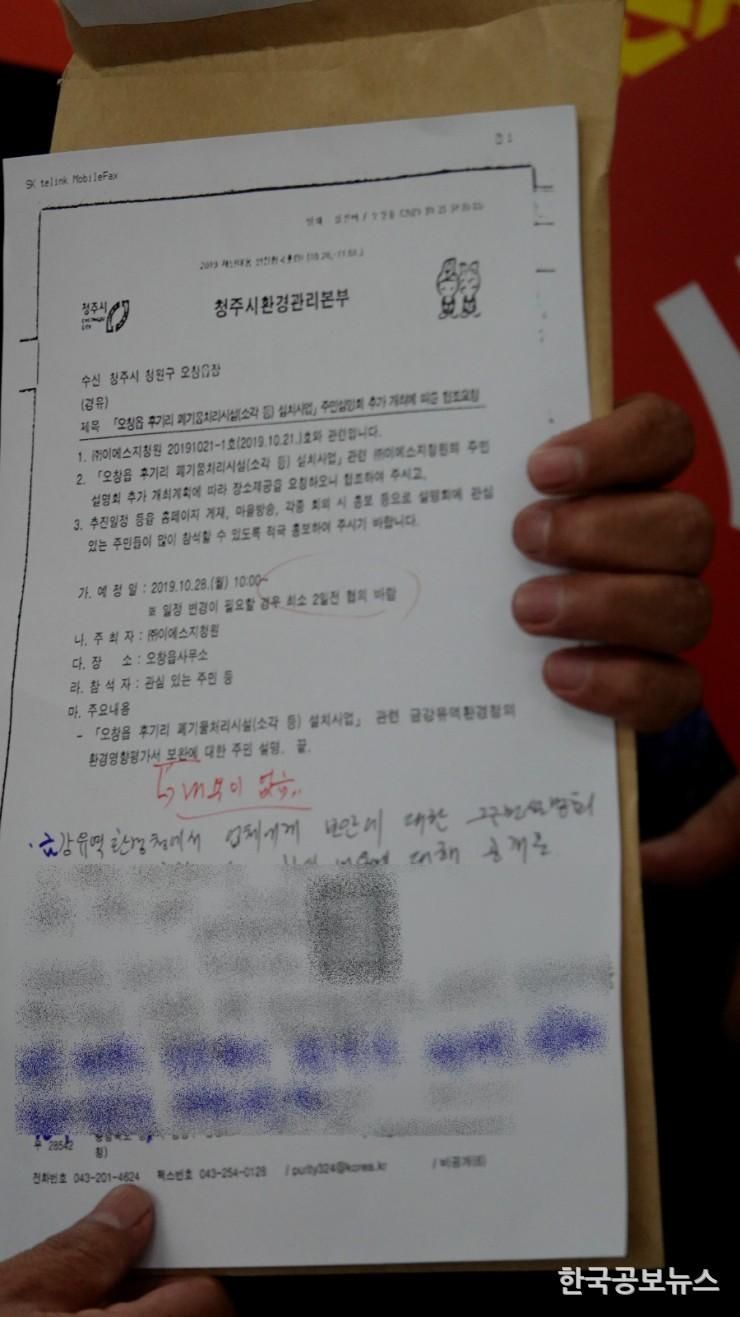 SK telink MobileFax
청주시
청주시환경관리본부
수신 청주시 청원구 오창읍장
(경유)
제목 「오창읍 후기리 폐기물처리시설(소각 등) 설치사업」 주민설명회 추가 개최에 따른 협조요청
1. ㈜이에스지청원 20191021-1호(2019.10.21.)호와 관련입니다.
2. 「오창읍 후기리 폐기물처리시설(소각 등) 설치사업」 관련 ㈜이에스지청원의 주민
설명회 추가 개최계획에 따라 장소제공을 요청하오니 협조하여 주시고,
3. 추진일정 등읍 홈페이지 게재, 마을방송, 각종 회의 시 홍보 등으로 설명회에 관심
있는 주민들이 많이 참석할 수 있도록 적극 홍보하여 주시기 바랍니다.
가. 예 정 일 : 2019.10.28.(월) 10:00~
※ 일정 변경이 필요할 경우 최소 2일전 협의 바람
나. 주 최 자 : ㈜이에스지청원
다. 장 소 : 오창읍사무소
라. 참 석 자 : 관심 있는 주민 등
마. 주요내용
- 「오창읍 후기리 폐기물처리시설(소각 등) 설치사업」 관련 금강유역환경청의
환경영향평가서 보완에 대한 주민 설명. 끝.
내용이 없음..
금강유역환경청에서 업체에게 보안에 대한
대해 공개로
우 28542
전화번호 043-201-4624 팩스번호 043-254-0128 / purity324@korea.kr / 비공개(6)
한국공보뉴스